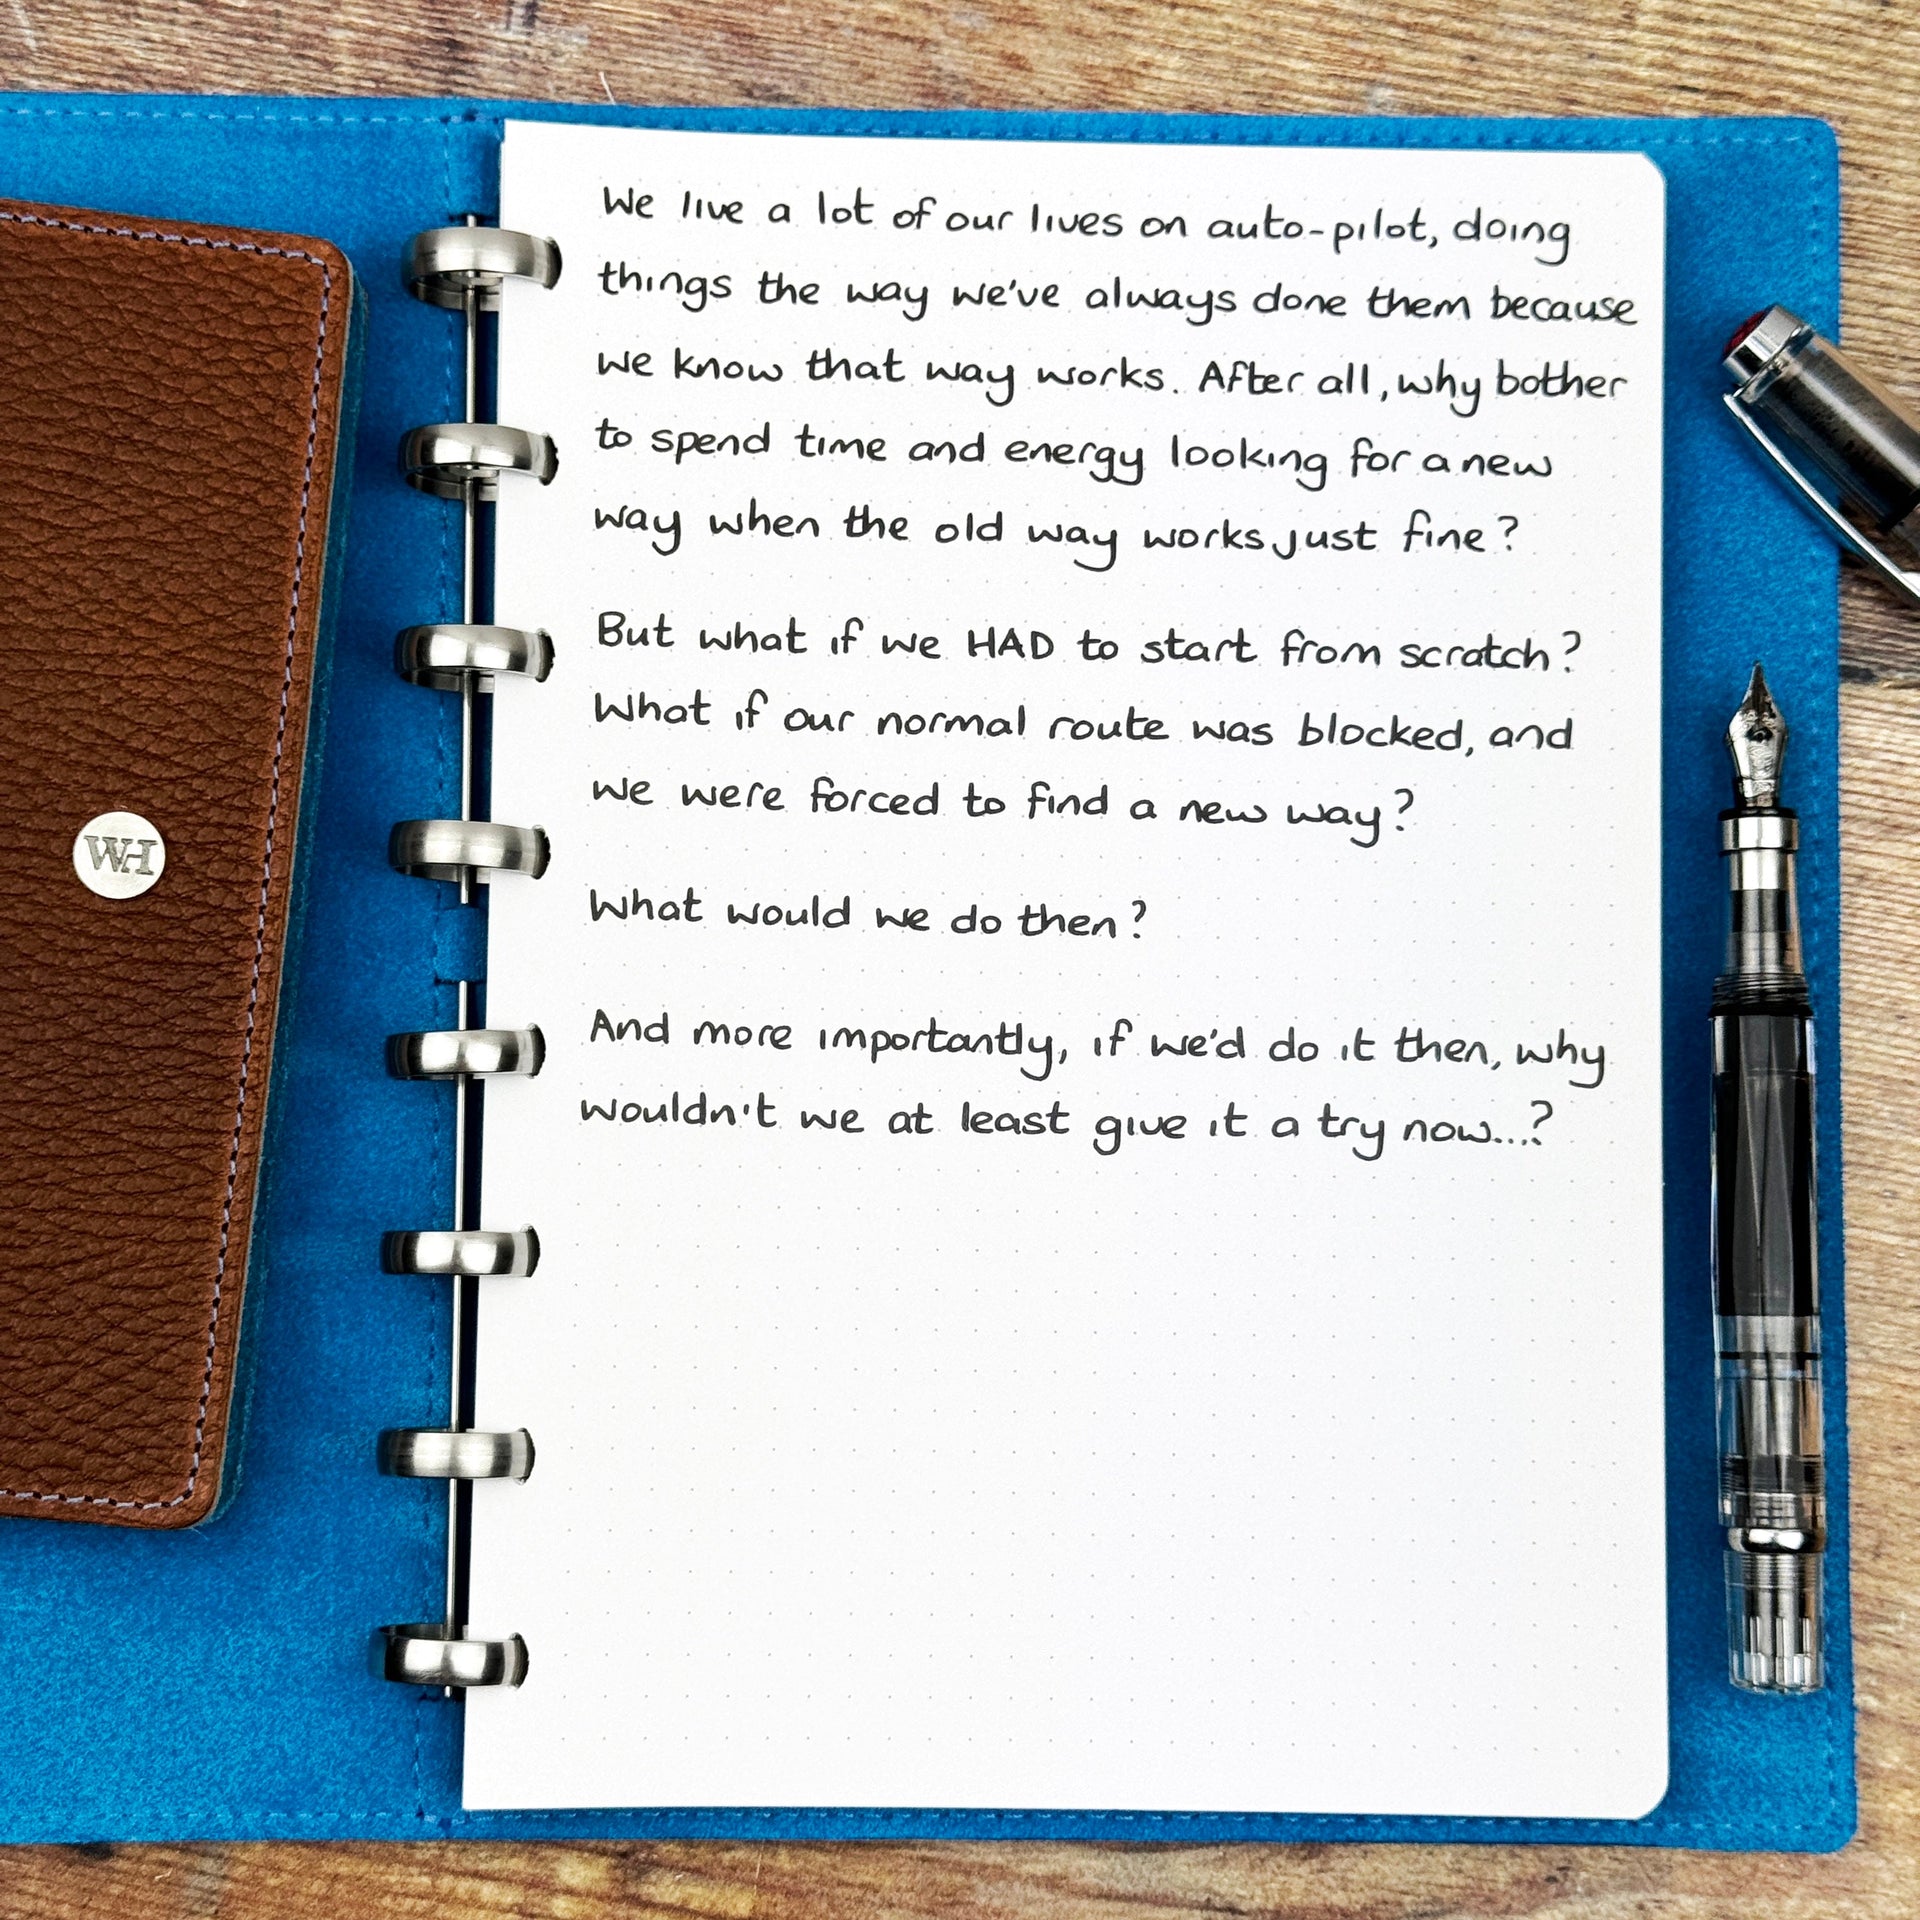 We live a lot of our lives on auto-pilot, doing
things the way we've always done them because
we know that way works. After all, why bother
to spend time and energy looking for a new
way when the old way works just fine?
But what if we HAD to start from scratch?
What if our normal route was blocked, and
we were forced to find a new way?
What would we do then?
And more importantly, if we'd do it then, why
wouldn't we at least give it a try now...?
WH